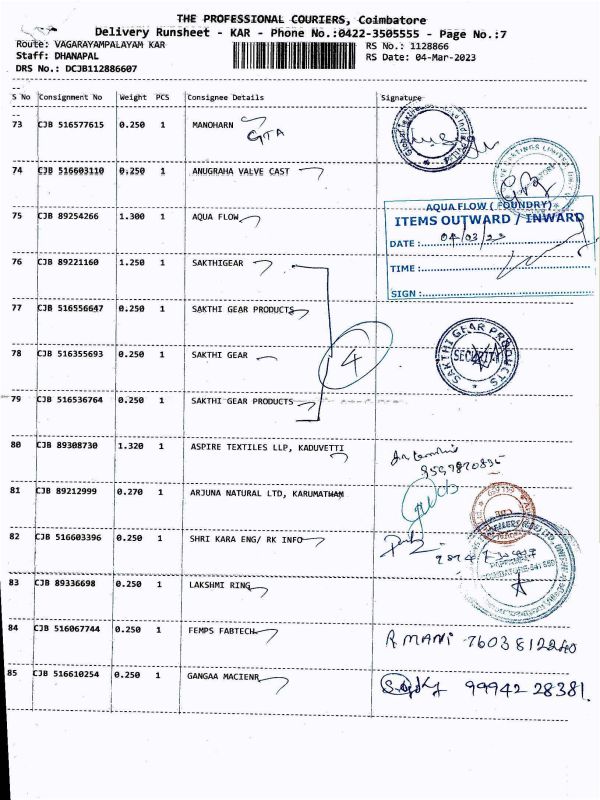 THE PROFESSIONAL COURIERS, Coimbatore
Delivery Runsheet - KAR - Phone No.:0422-3505555 - Page No.:7
Route: VAGARAYAMPALAYAM KAR
RS No.: 1128866
Staff: DHANAPAL
RS Date: 04-Mar-2023
DRS No.: DCJB112886607
S No Consignment No Weight PCS Consignee Details Signature
73 CJB 516577615 0.250 1 MANOHARN
GTA
74 CJB 516603110 0.250 1 ANUGRAHA VALVE CAST
75 CJB 89254266 1.300 1 AQUA FLOW
AQUA FLOW (FOUNDRY)
ITEMS OUTWARD / INWARD
DATE : 04/03/23
TIME :
SIGN :
76 CJB 89221160 1.250 1 SAKTHIGEAR
77 CJB 516556647 0.250 1 SAKTHI GEAR PRODUCTS
78 CJB 516355693 0.250 1 SAKTHI GEAR
4
SAKTHI GEAR PRODUCTS
SECURITY
79 CJB 516536764 0.250 1 SAKTHI GEAR PRODUCTS
80 CJB 89308730 1.320 1 ASPIRE TEXTILES LLP, KADUVETTI
81 CJB 89212999 0.270 1 ARJUNA NATURAL LTD, KARUMATHAM
82 CJB 516603396 0.250 1 SHRI KARA ENG/ RK INFO
83 CJB 89336698 0.250 1 LAKSHMI RING
84 CJB 516067744 0.250 1 FEMPS FABTECH
R MANI 7603812240
85 CJB 516610254 0.250 1 GANGAA MACIENR
99942 28381.